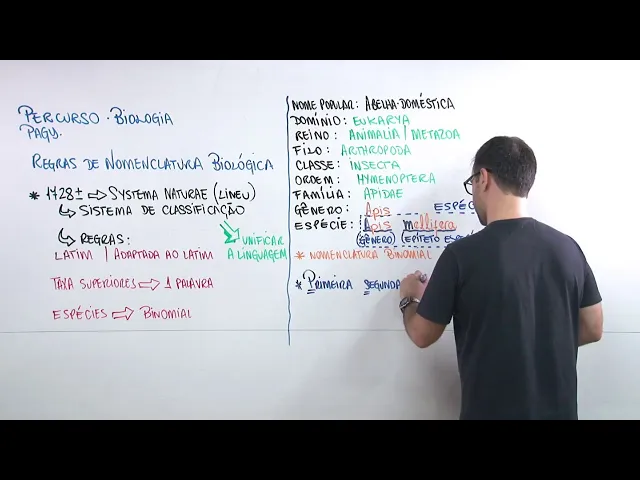 PERCURSO · BIOLOGIA
PAGY.
REGRAS DE NOMENCLATURA BIOLÓGICA
* 1728± ⇨ SYSTEMA NATURAE (LINEU)
↳ SISTEMA DE CLASSIFICAÇÃO
↳ REGRAS:
UNIFICAR
A LINGUAGEM
LATIM / ADAPTADA AO LATIM
TAXA SUPERIORES ⇨ 1 PALAVRA
ESPÉCIES ⇨ BINOMIAL
NOME POPULAR: ABELHA-DOMÉSTICA
DOMÍNIO: EUKARYA
REINO: ANIMALIA / METAZOA
FILO: ARTHROPODA
CLASSE: INSECTA
ORDEM: HYMENOPTERA
FAMÍLIA: APIDAE
GÊNERO: Apis
ESPÉC
ESPÉCIE: Apis mellifera
(GÊNERO) (EPÍTETO ESPE
* NOMENCLATURA BINOMIAL
* PRIMEIRA SEGUNDA